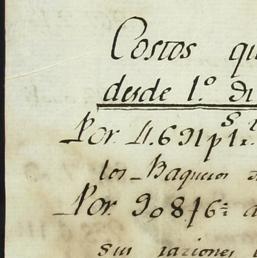 Costos qu
desde 1.º di
Por 4.691 p
los Baqueros
Por 90876
sus raciones